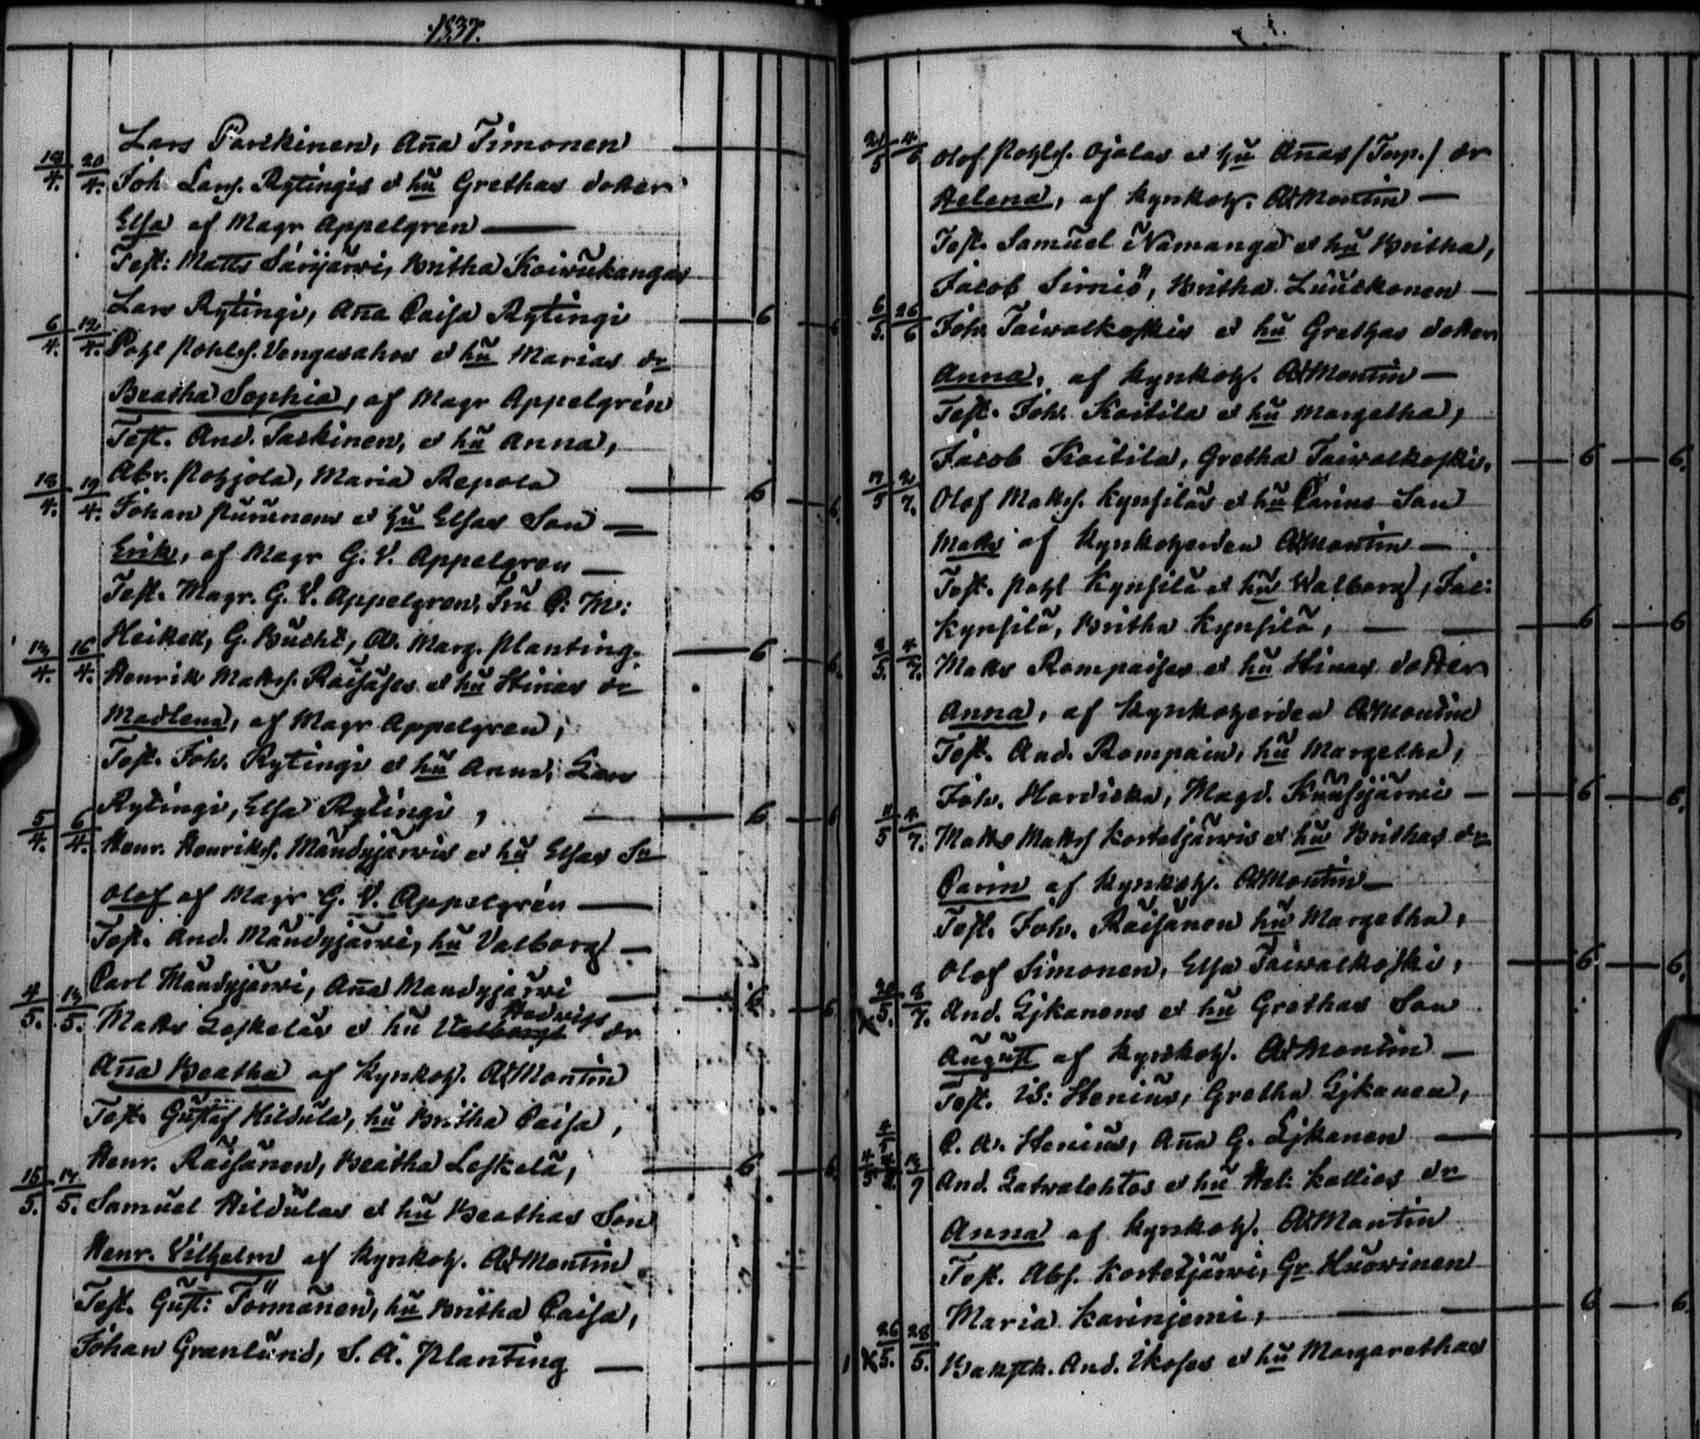 1837.
Lars Parkinen, Aña Timonen
19/4. 20/4. Joh. Larss. Rytingis et hũ Grethas dotter
Elsa af Magr Appelgren —
Test: Matts Särijärvi, Britha Koivukangas
Lars Rytingi, Aña Caisa Rytingi — 6
6/4. 12/4. Pohl Pohlss. Vengasahos et hũ Marias dr
Beatha Sophia, af Magr Appelgrén
Test. And. Taskinen, et hũ Anna,
Abr. Pohjola, Maria Repola — 6
18/4. 19/4. Johan Purunens et hũ Elsas Son —
Erik, af Magr G. V. Appelgren —
Test. Magr. G. V. Appelgren, Fru C: M:
Heikel, G. Bucht, A. Marg. Planting. — 6
13/4. 16/4. Henrik Matss. Räisäses et hũ Stinas dr
Madlena, af Magr Appelgren,
Test. Joh. Rytingi et hũ Anna, Lars
Rytingi, Elsa Rytingi, — 6
5/4. 6/4. Henr. Henrikss. Mändyjärvis et hũ Elsas Sn
Olof af Magr G. V. Appelgrén —
Test. And. Mändyjärvi, hũ Valborg —
Carl Mändyjärvi, Aña Mandyjärvi — 6
4/5. 13/5. Matts Leskeläs et hũ Hedvigs dr
Aña Beatha af Kyrkoh. AdMontin
Test. Gustaf Hildula, hũ Britha Caisa,
Henr. Räisänen, Beatha Leskelä, — 6
15/5. 17/5. Samuel Hildulas et hũ Beathas Son
Henr. Vilhelm af Kyrkoh. AdMontin
Test. Gust: Törmänen, hũ Britha Caisa,
Johan Granlund, S. A. Planting —
Olof Pohlss. Ojalas et hũ Añas /Torp./ dr
Helena, af Kyrkoh. AdMontin —
Test. Samuel Nämangä et hũ Britha,
Jacob Simiö, Britha Luukkonen —
6/5. 26/6 Joh. Taivalkoskis et hũ Grethas dotter
Anna, af Kyrkoh. AdMontin —
Test. Joh. Koitila et hũ Margetha,
Jacob Koitila, Gretha Taivalkoski. — 6 — 6.
17/5 2/7. Olof Matss. Kynsiläs et hũ Carins Son
Matts af Kyrkoherden AdMontin —
Test. Pohl Kynsilä et hũ Walborg, Jac:
Kynsilä, Britha Kynsilä, — 6 — 6
3/5. 4/7. Matts Rompaises et hũ Stinas dotter
Anna, af Kyrkoherden AdMontin
Test. And. Rompain, hũ Margetha,
Joh. Hardiska, Magd. Kuusijärvi — 6 — 6.
4/7. Matts Matss Kortetjärvis et hũ Brithas dr
Carin af Kyrkoh. AdMontin —
Test. Joh. Räisänen hũ Margetha,
Olof Simonen, Elsa Taivalkoski, — 6 — 6.
X 20/5. 8/7. And. Ljkanens et hũ Grethas Son
August af Kyrkoh. AdMontin —
Test. Is: Stenius, Gretha Ljkanen,
C. A. Stenius, Aña G. Ljkanen —
And. Latvalehtos et hũ Hel: Kallios dr
Anna af Kyrkoh. AdMontin
Test. Abs. Kortetjärvi, Gr. Huovinen
Maria Karinjemi, — 6 — 6
X 26/5. 28/5. And. Ikoses et hũ Margarethas